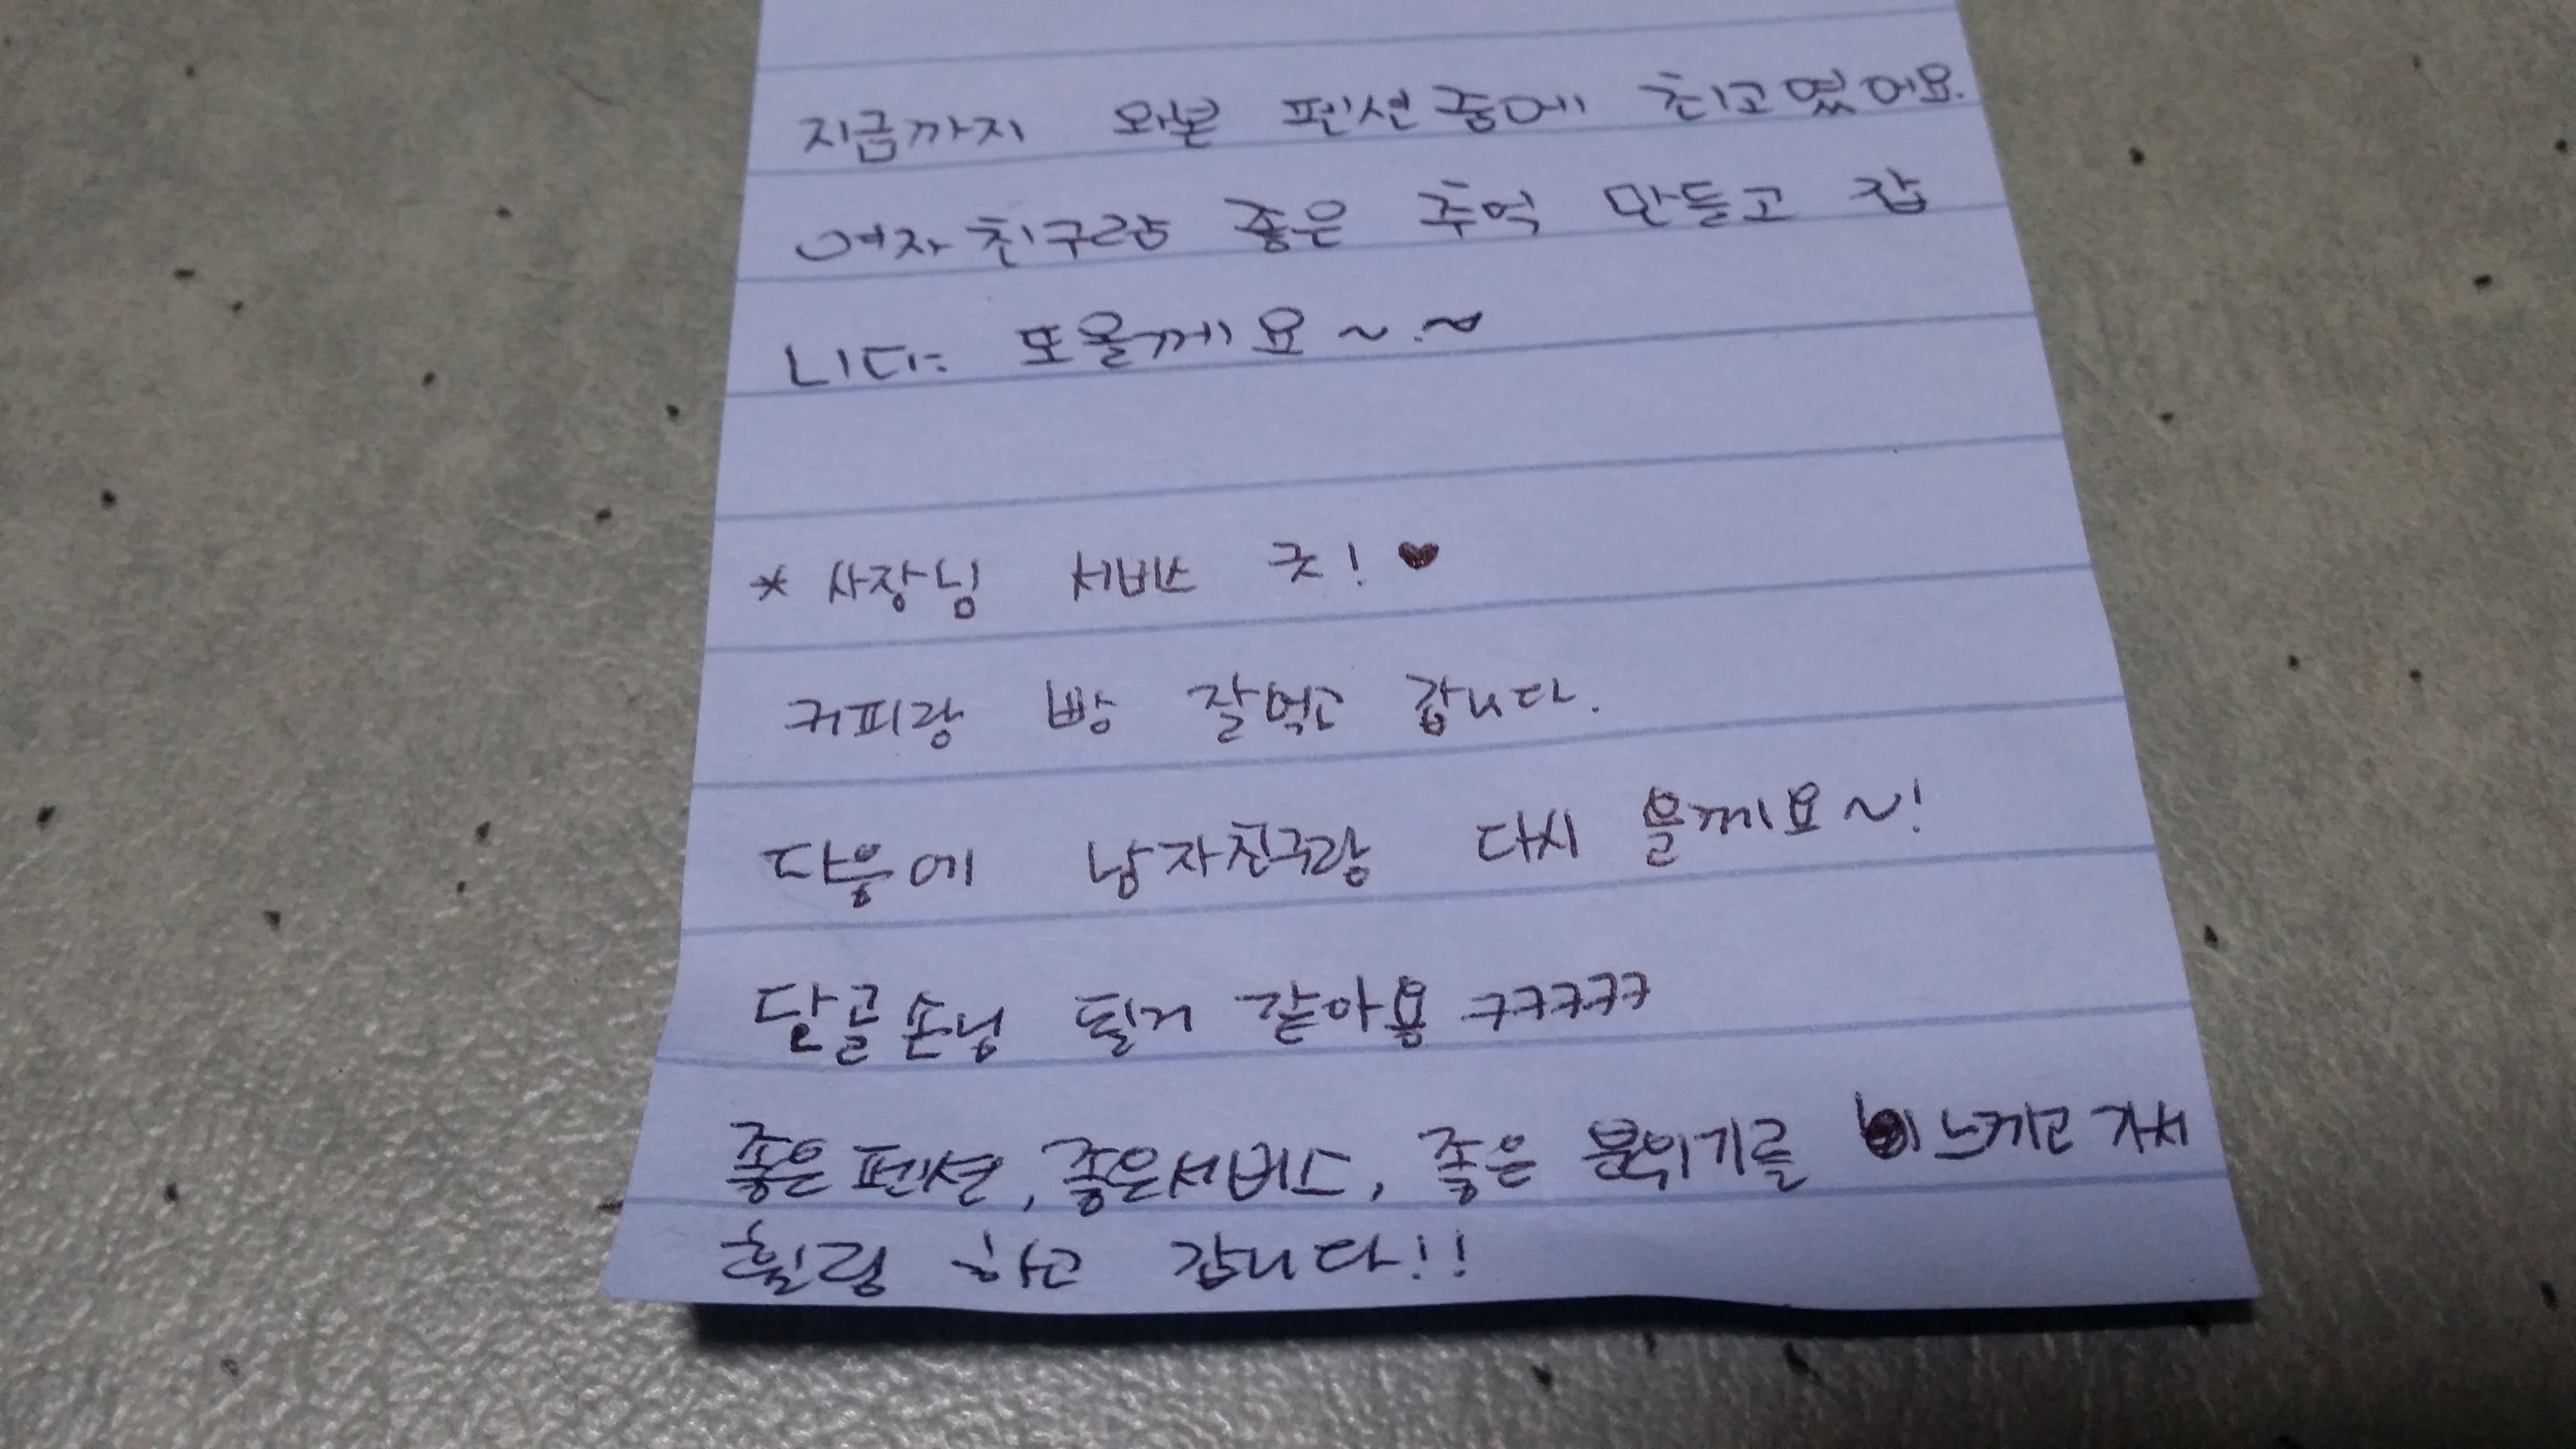 지금까지 와본 펜션중에 최고였어요.
여자친구랑 좋은 추억 만들고 갑
니다. 또올께요~.~
* 사장님 서비스 굿! ♥
커피랑 빵 잘먹고 갑니다.
다음에 남자친구랑 다시 올께요~!
단골손님 될거 같아용 ㅋㅋㅋㅋㅋ
좋은펜션, 좋은서비스, 좋은 분위기를 느끼고 가서
힐링 하고 갑니다!!